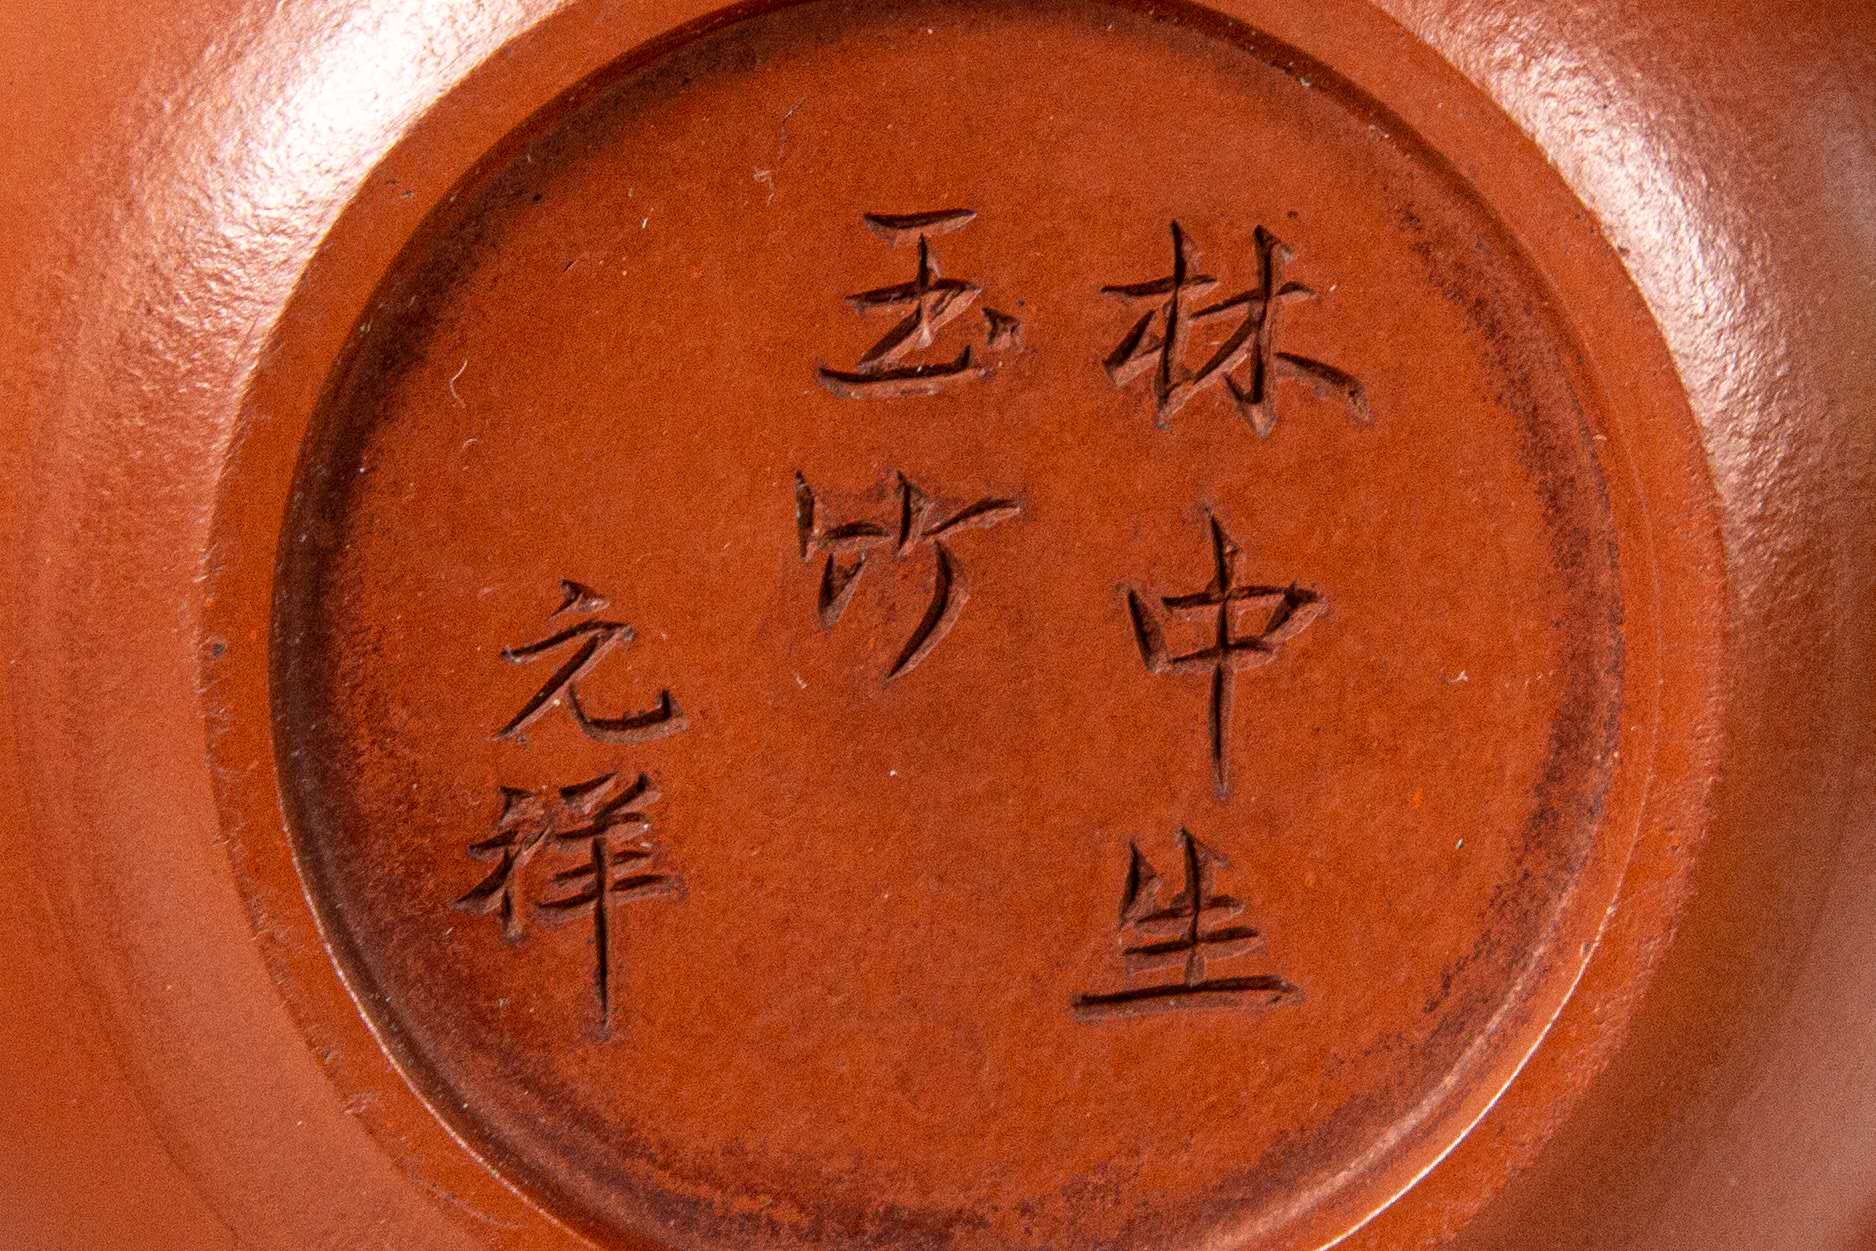 林中生
玉竹
元祥